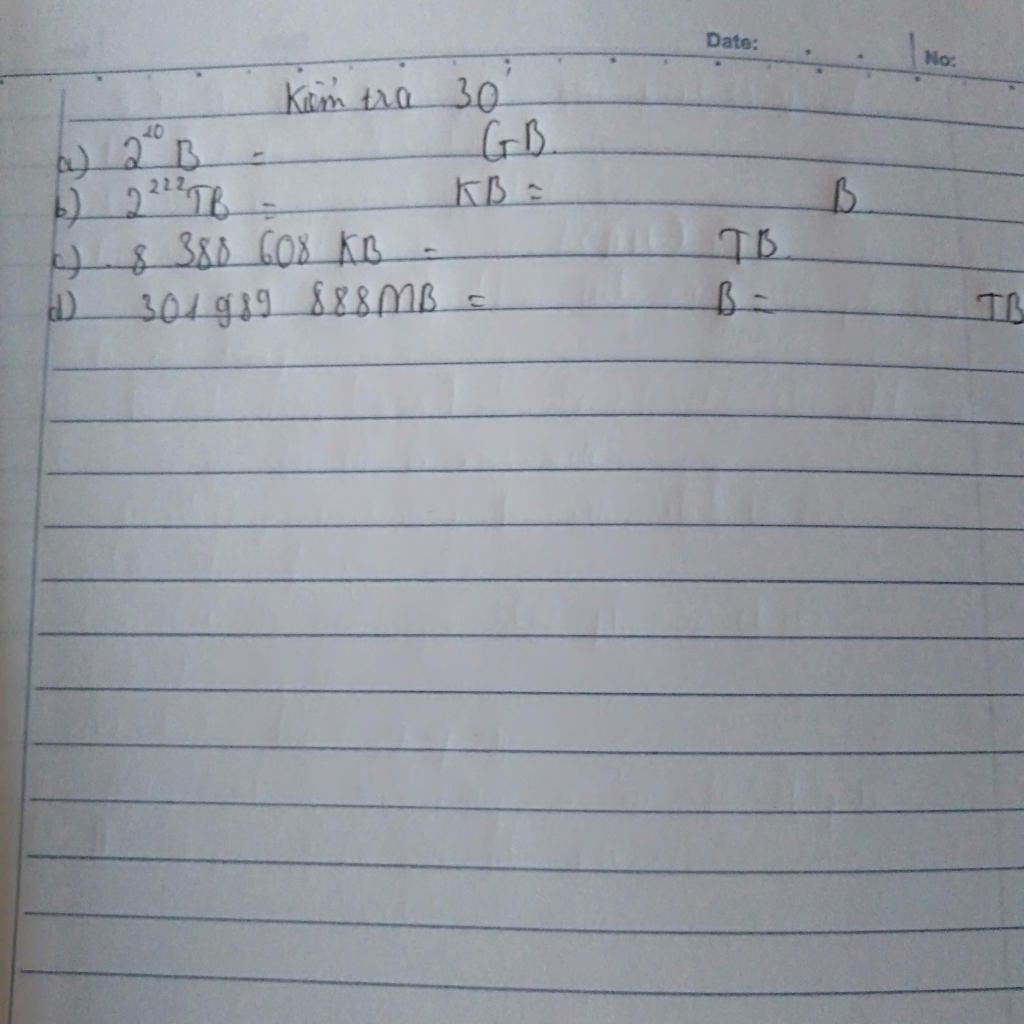 Date: No:
Kiểm tra 30'
a) 2^10 B = GB.
b) 2^222 TB = KB = B
c) 8 388 608 KB = TB.
d) 301 989 888 MB = B = TB